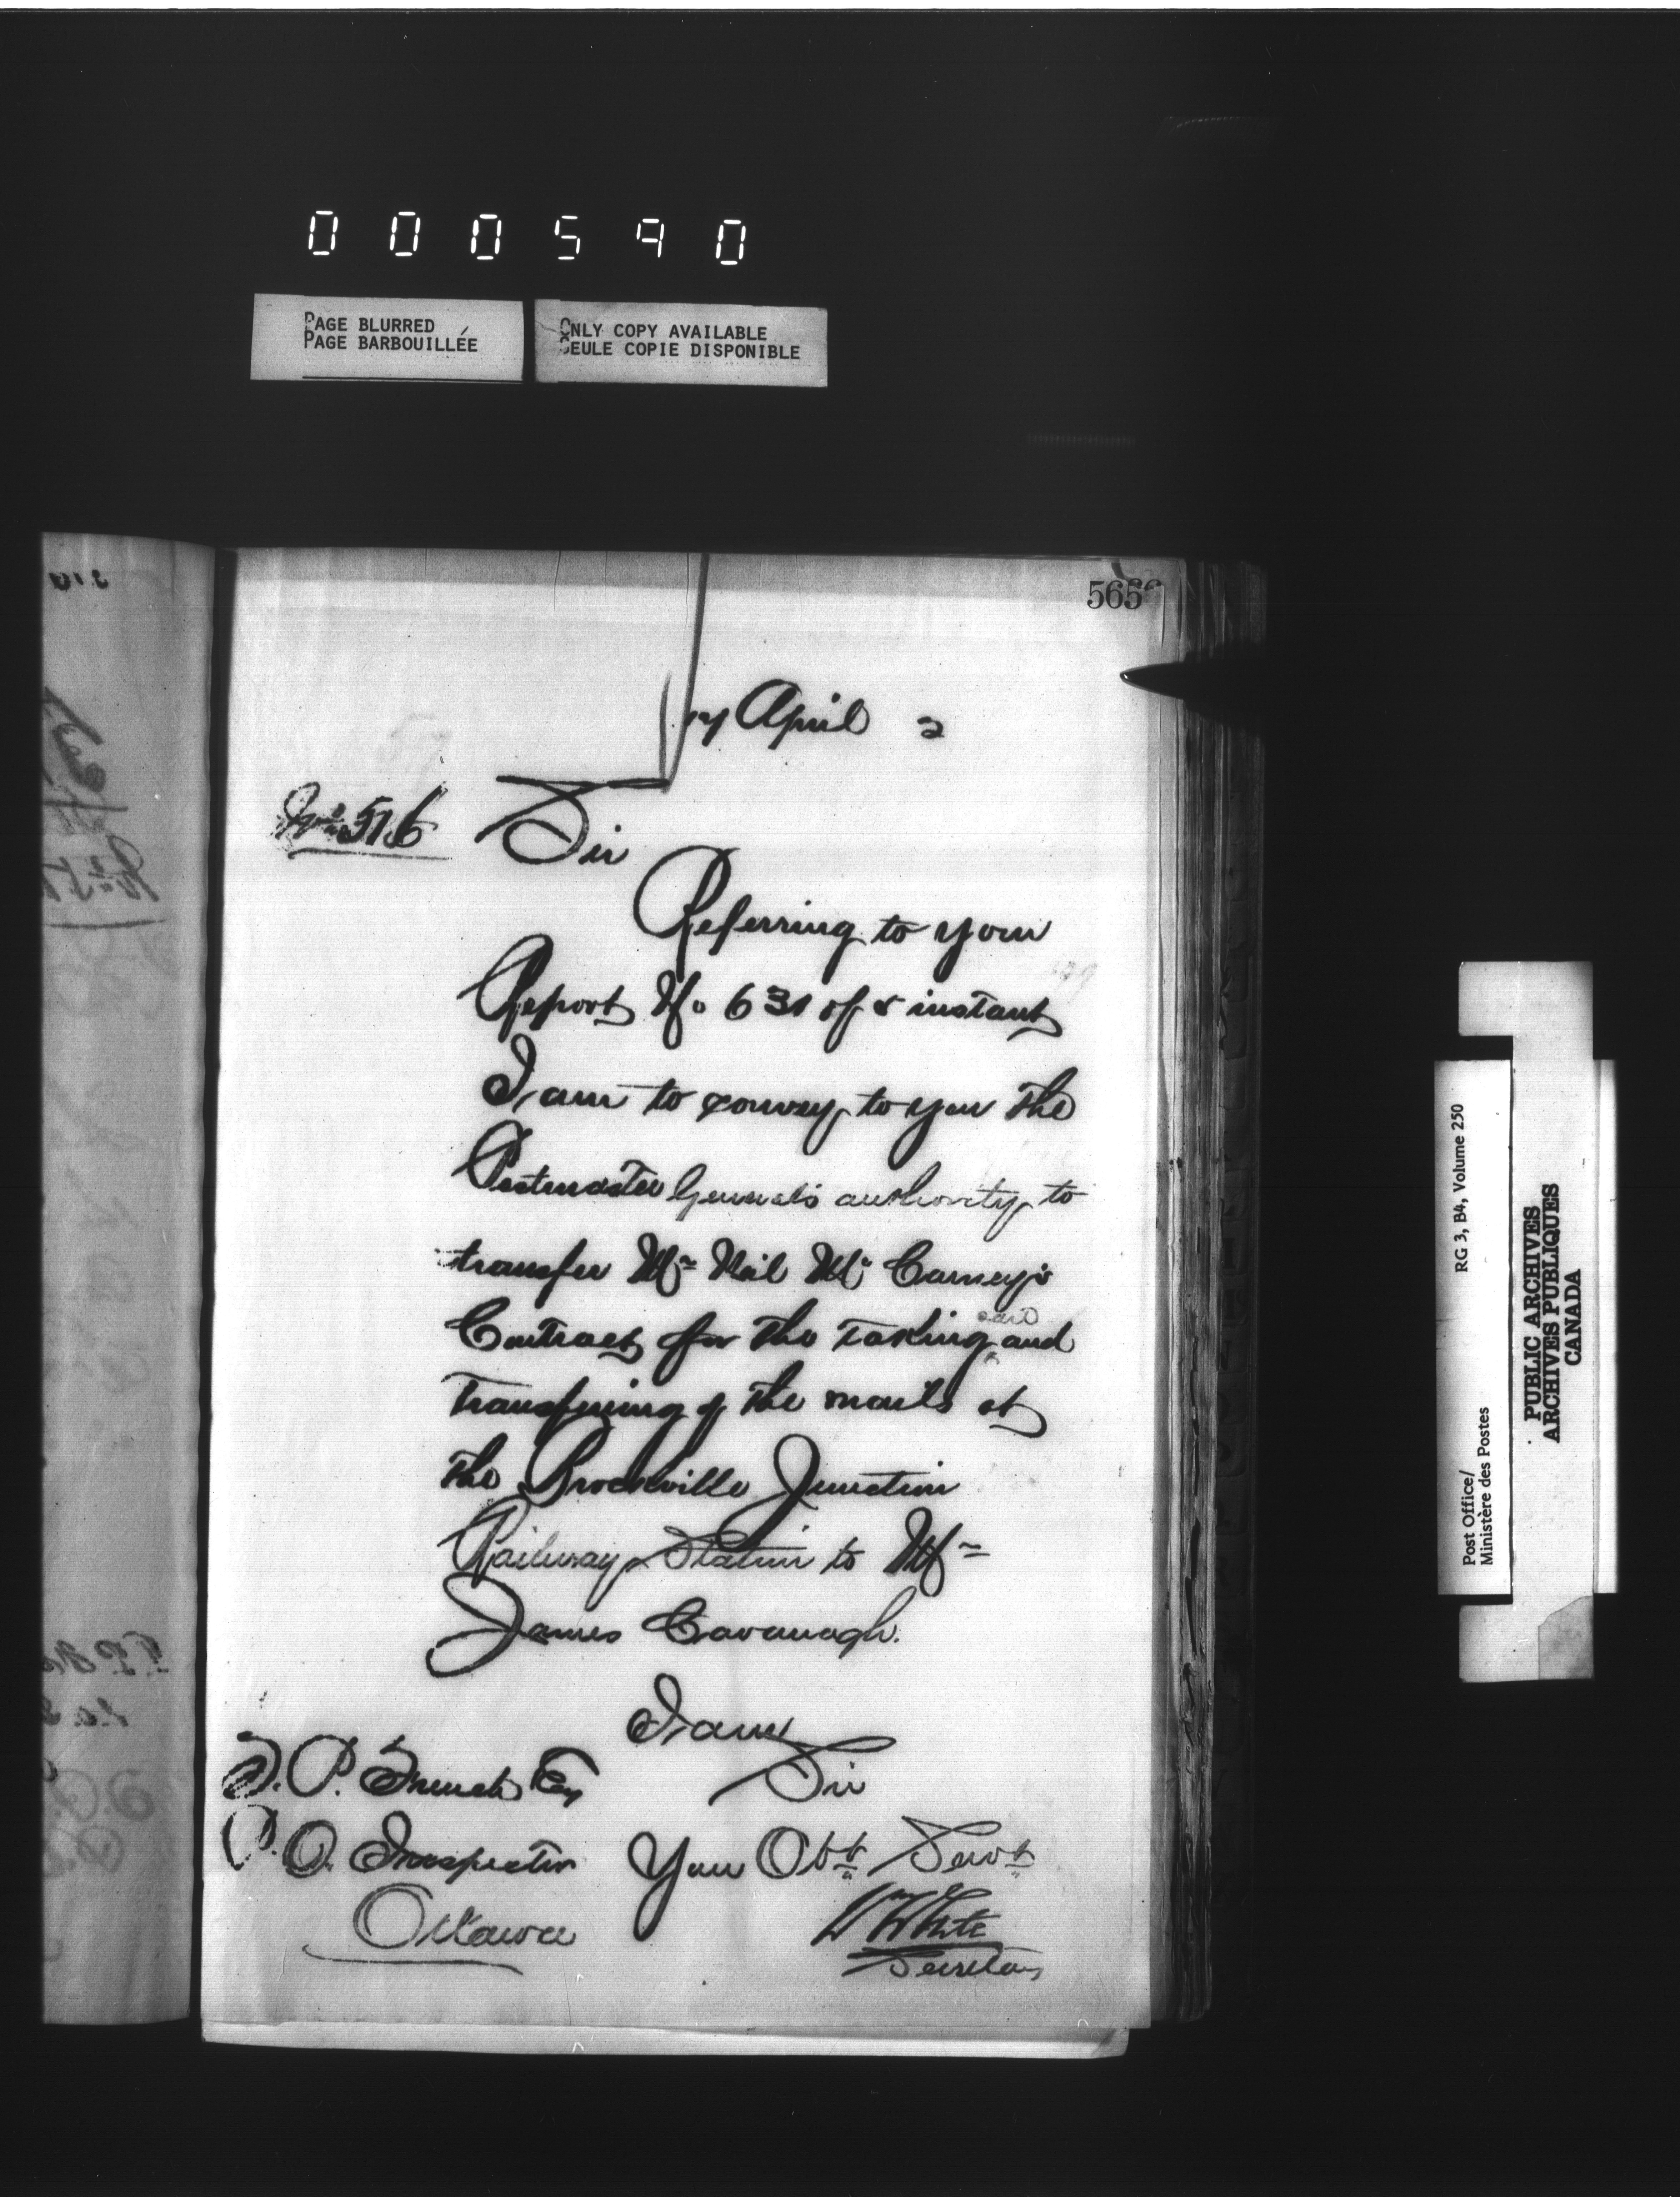 000590
PAGE BLURRED
PAGE BARBOUILLÉE
ONLY COPY AVAILABLE
SEULE COPIE DISPONIBLE
565
April 2
No 516
Sir
Referring to your
Report No 631 of 8 instant
I am to convey to you the
Postmaster General's authority to
transfer Mr Neil McCarney's
Contract for the taking care and
transferring of the mails at
the Brockville Junction
Railway Station to Mr
James Cavanagh.
I am
Sir
Your Obt Servt
W White
Secretary
P. French Esq
P.O. Inspector
Ottawa
Post Office/
Ministère des Postes
RG 3, B4, Volume 250
PUBLIC ARCHIVES
ARCHIVES PUBLIQUES
CANADA